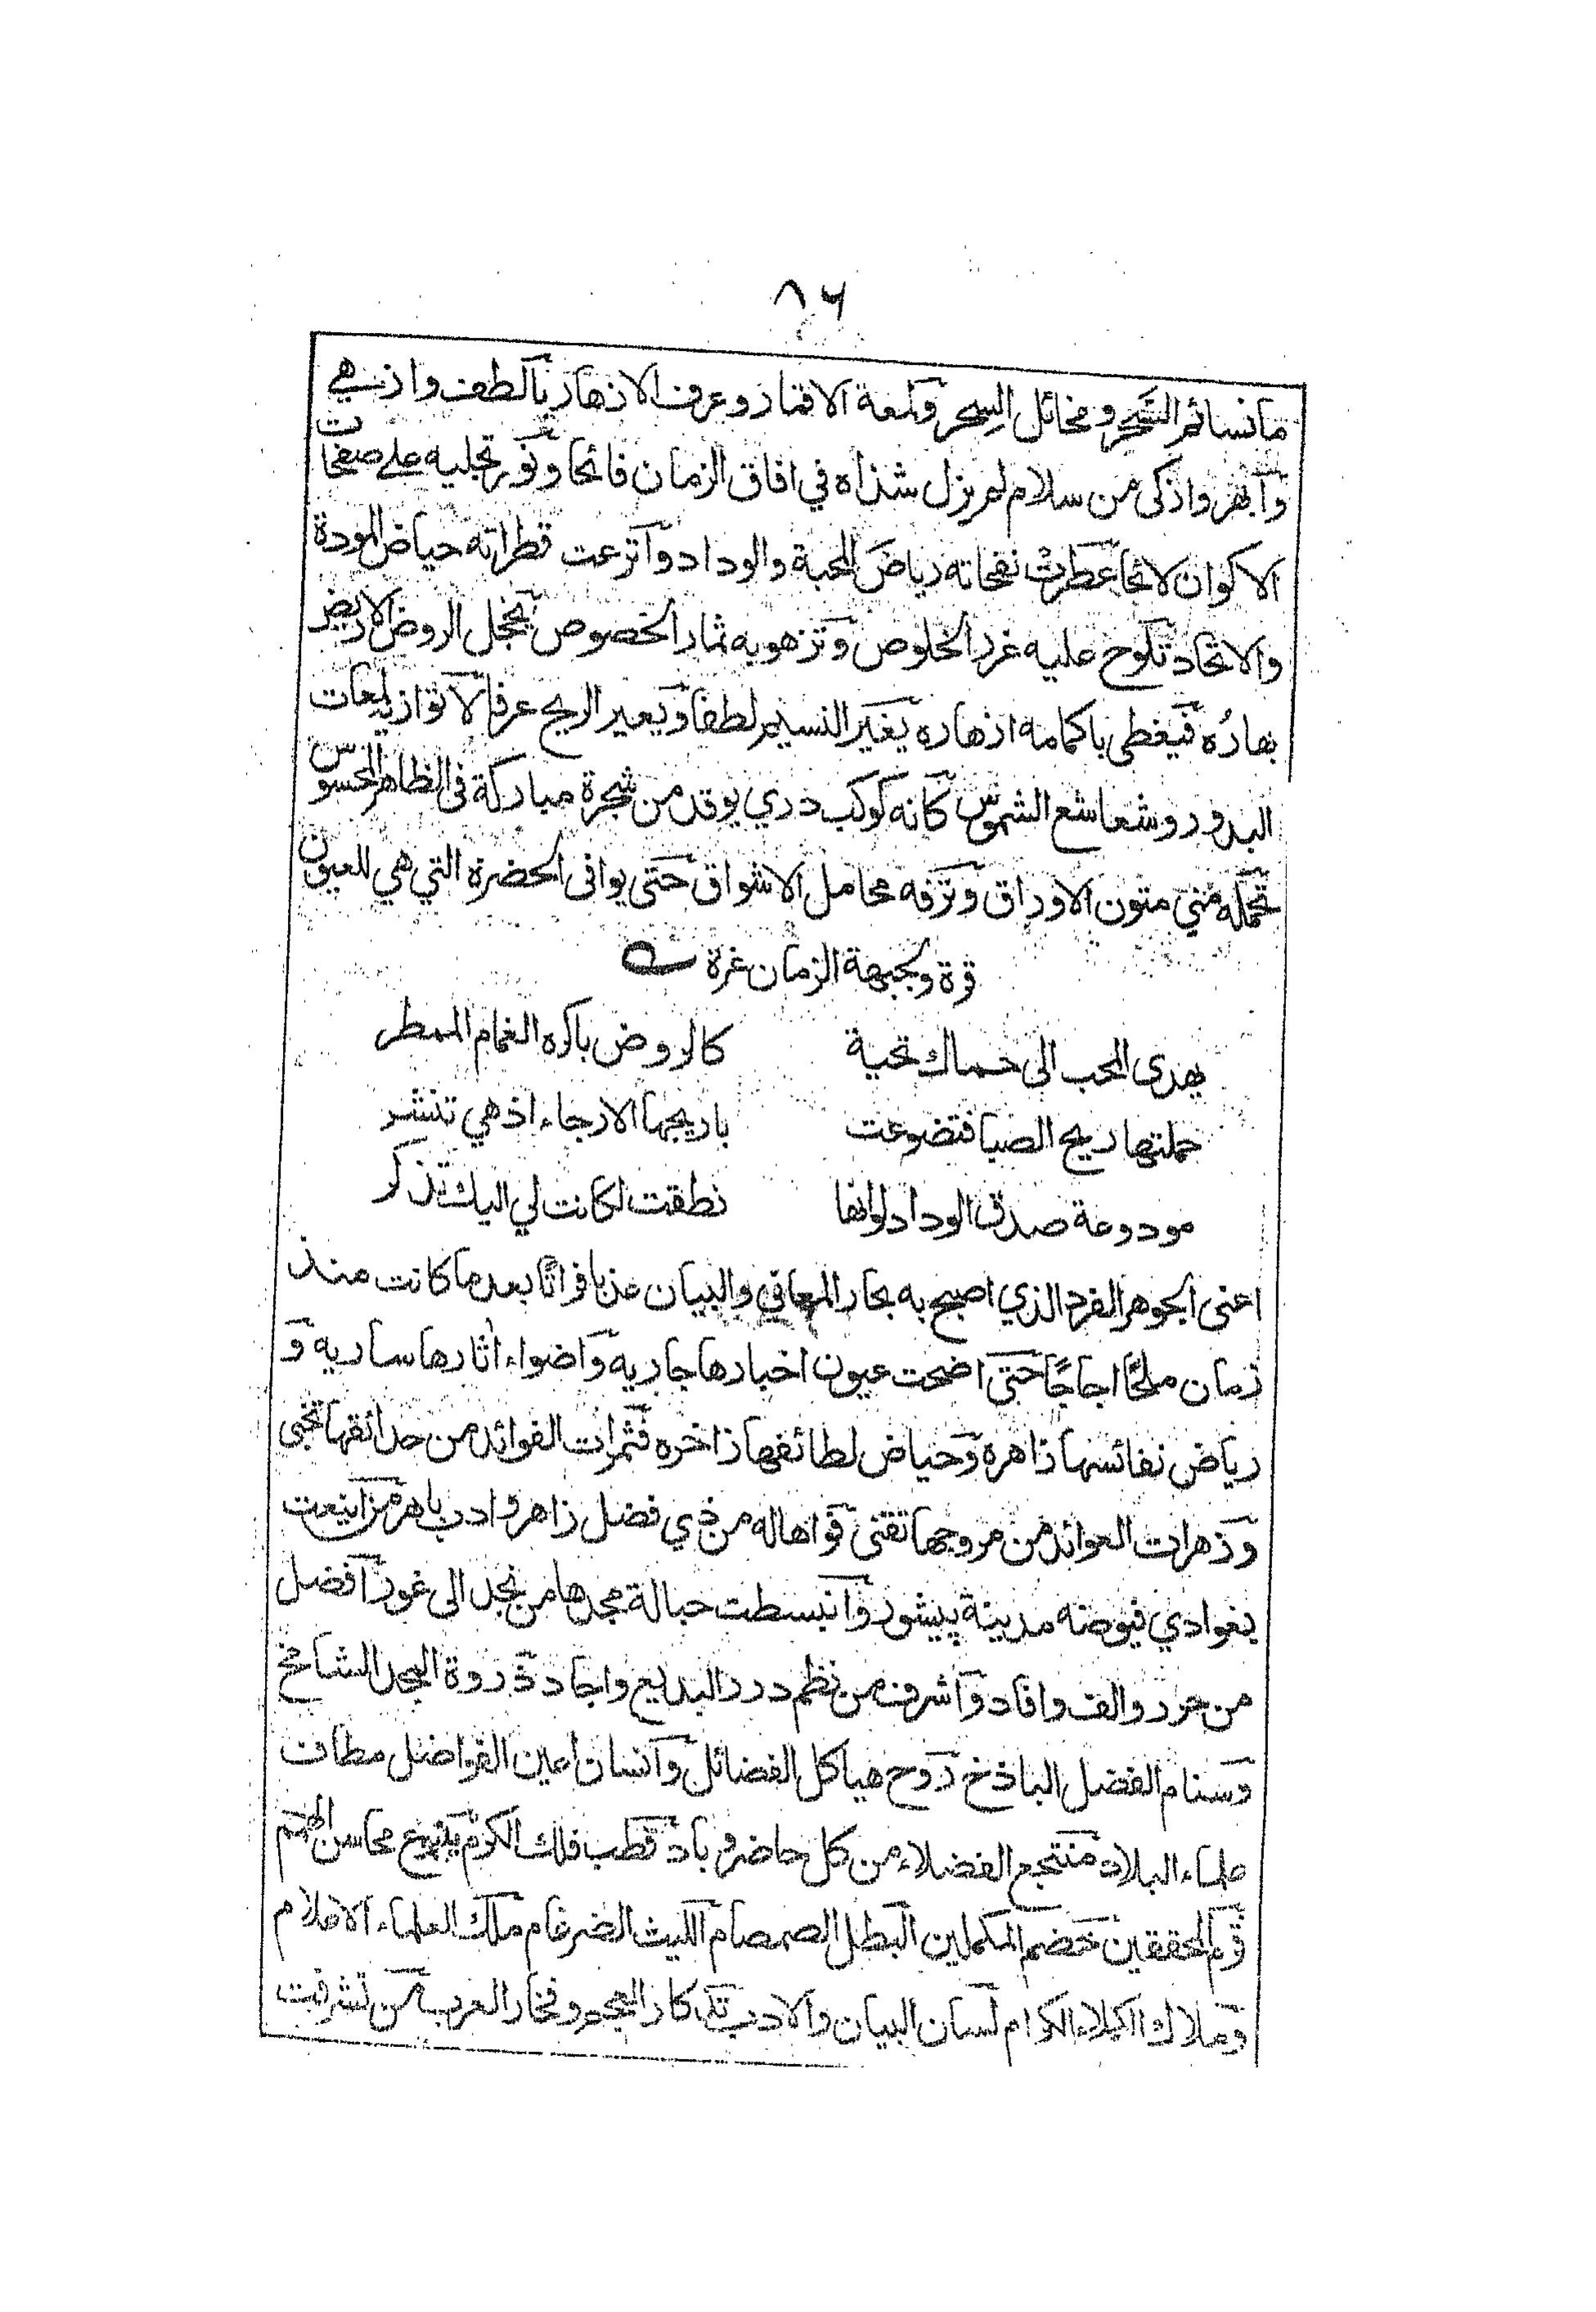 ٨٦
ما نسائم السَّحر ومخائل السِحر ولمعة الاقمار وعرف الازهار بالطف وازهى
وابهر واذكى من سلام لم يزل شذاه في افاق الزمان فائحا ونور تجليه على صفحات
الاكوان لائحا عطرتْ نفحاته رياضَ المحبة والوداد واترعت قطراته حياض المودة
والاتحاد تلوح عليه غرر الخلوص وتزهو به ثمار الخصوص يخجل الروض الاريض
بهارُه فيغطى باكمامه ازهاره يغير النسيم لطفا ويعير الريح عرفا لا توازيه لمعات
البدور وشعاشع الشموس كانه كوكب دري يوقد من شجرة مباركة فى الظاهر المحسوس
تحمله مني متون الاوراق وتزفه محامل الاشواق حتى يوافى الحضرة التي هي للعيون
قرة ولجبهة الزمان غرة
يهدى المحب الى حماك تحية كالروض باكره الغمام الممطر
حملتها ريح الصبا فتضوعت باريجها الارجاء اذ هي تنشر
مودوعة صدق الوداد لو انها نطقت لكانت لي اليك تذكر
اعنى الجوهر الفرد الذي اصبح به بحار المعانى والبيان عذبا فراتًا بعد ما كانت منذ
زمان ملحًا اجاجًا حتى اضحت عيون اخبارها جاريه واضواء اثارها ساريه و
رياض نفائسها زاهرة وحياض لطائفها زاخره فثمرات الفوائد من حدائقها تجنى
وزهرات العوائد من مروجها تقتنى فواها له من ذي فضل زاهر وادب باهر من اينعت
بغوادي فيوضه مدينة پيشور وانبسطت حبالة مجدها من نجد الى غور افضل
من حرر والف وافاد واشرف من نظم درر البديع واجاد ذروة المجد الشامخ
وسنام الفضل الباذخ روح هياكل الفضائل وانسان اعين الفواضل مطاف
علماء البلاد منتجع الفضلاء من كل حاضر وباد قطب فلك الكرم ينبوع محاسن الهمم
قرم المحققين خضم المكملين البطل الصمصام الليث الضرغام ملك العلماء الاعلام
وملاك الكملاء الكرام لسان البيان والادب تذكار العجم وفخار العرب من تشرفت